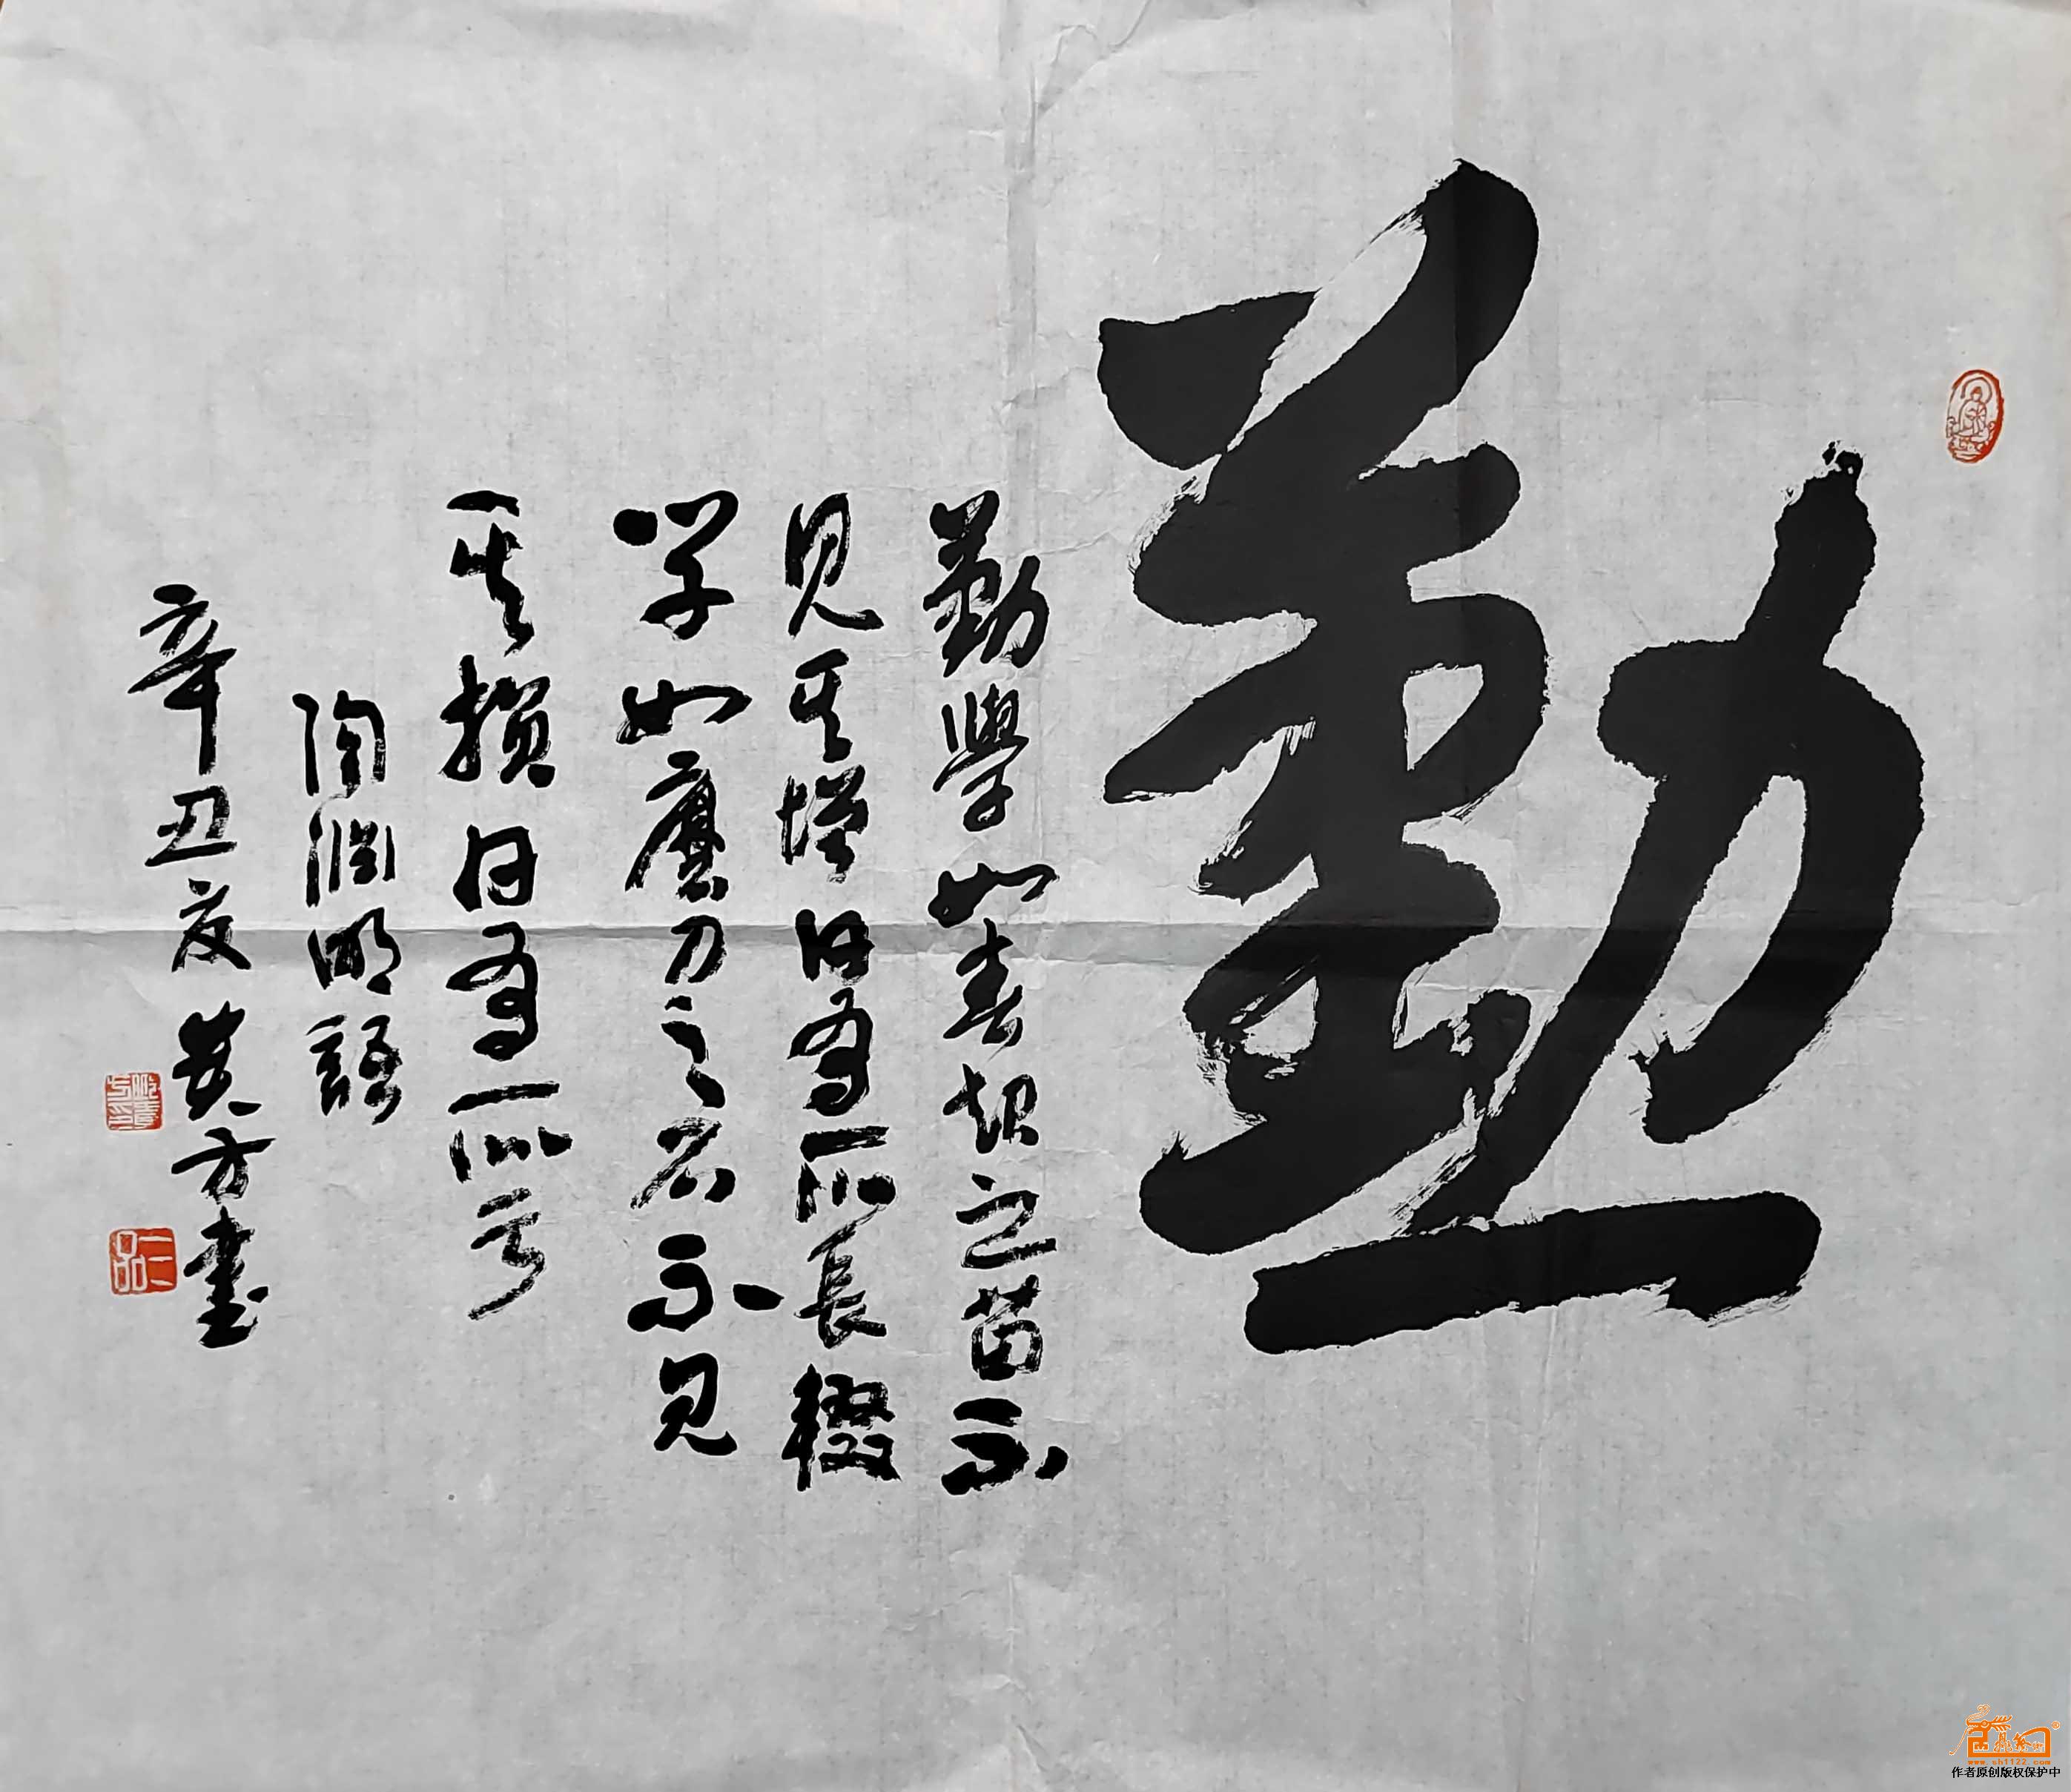 勤
勤學如春起之苗不
見其增日有所長輟
学如磨刀之石不見
其損日有所亏
陶淵明語
辛丑夏黄方書
www.sh1122.com
作者原创版权保护中